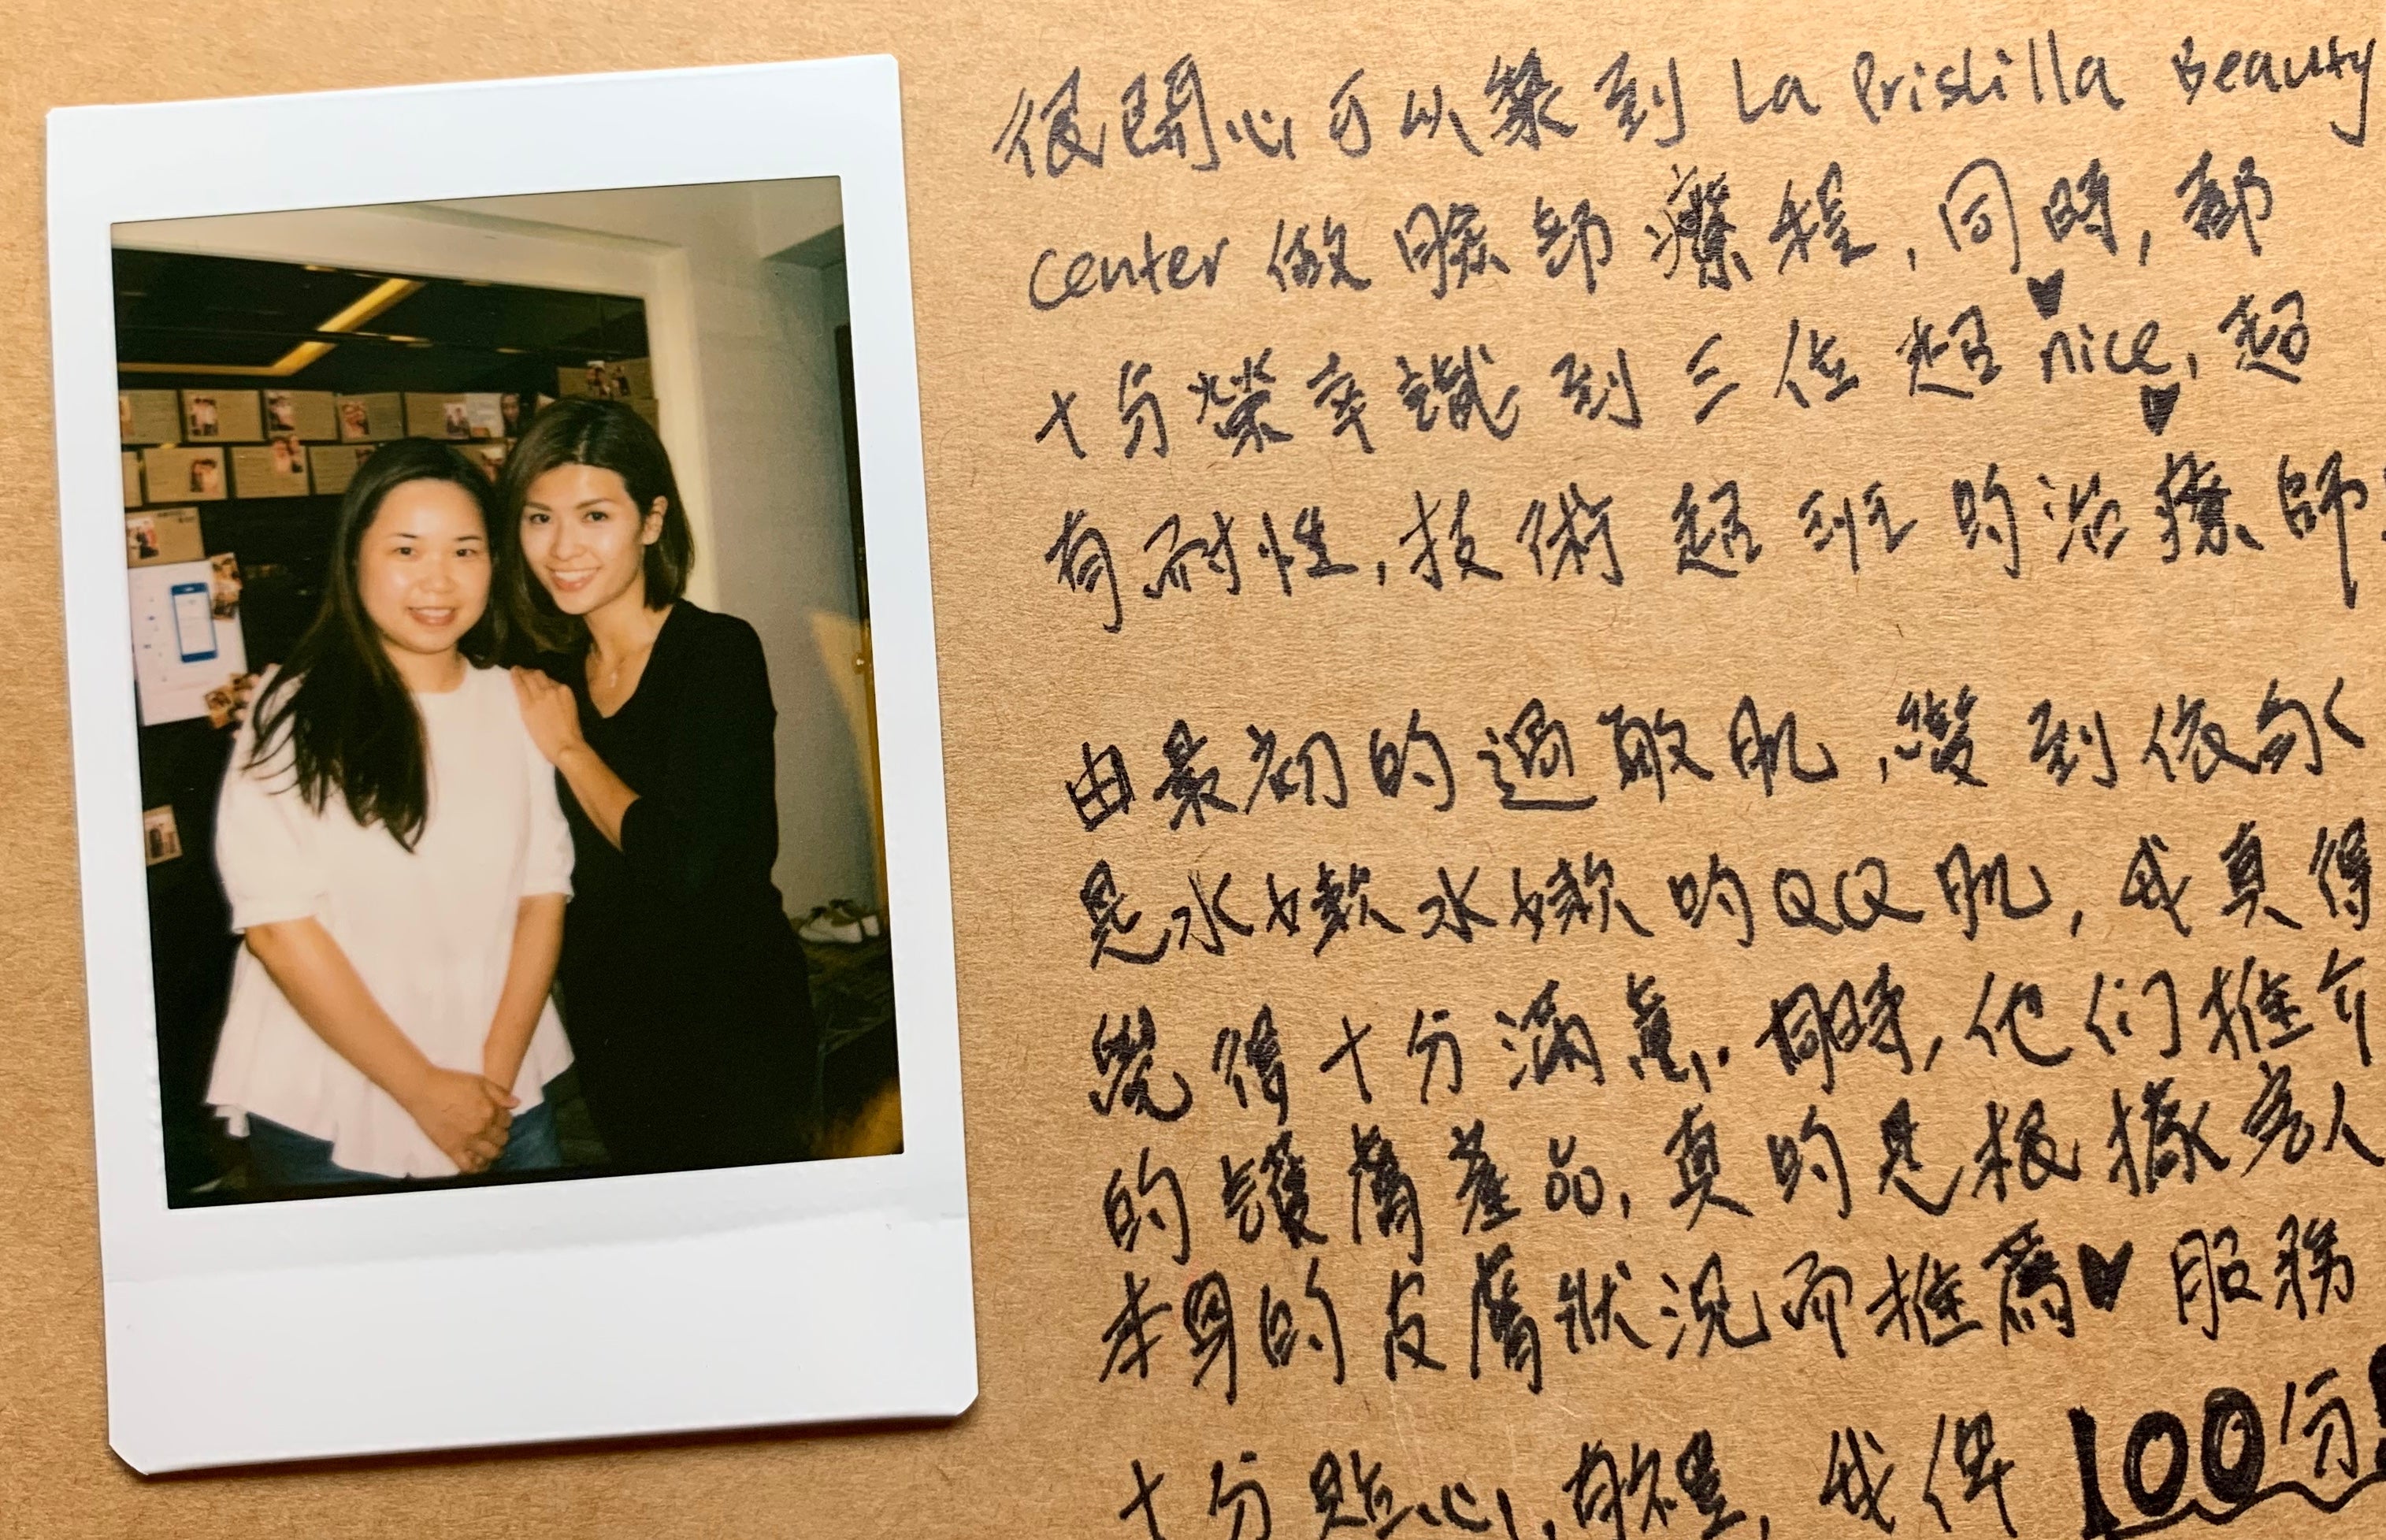 很開心可以黎到 La Priscilla Beauty
Center 做暗粒療程，同時，都
十分榮幸識到三位超 nice，超
有耐性，技術超班的治療師
由最初的過敏肌，變到依家
是水嫩水嫩的QQ肌，我真得
覺得十分滿意．同時，他们推介
的護膚產品，真的是根據客人
本身的皮膚狀況而推薦♥ 服務
十分貼心，有禮，我俾 100分!